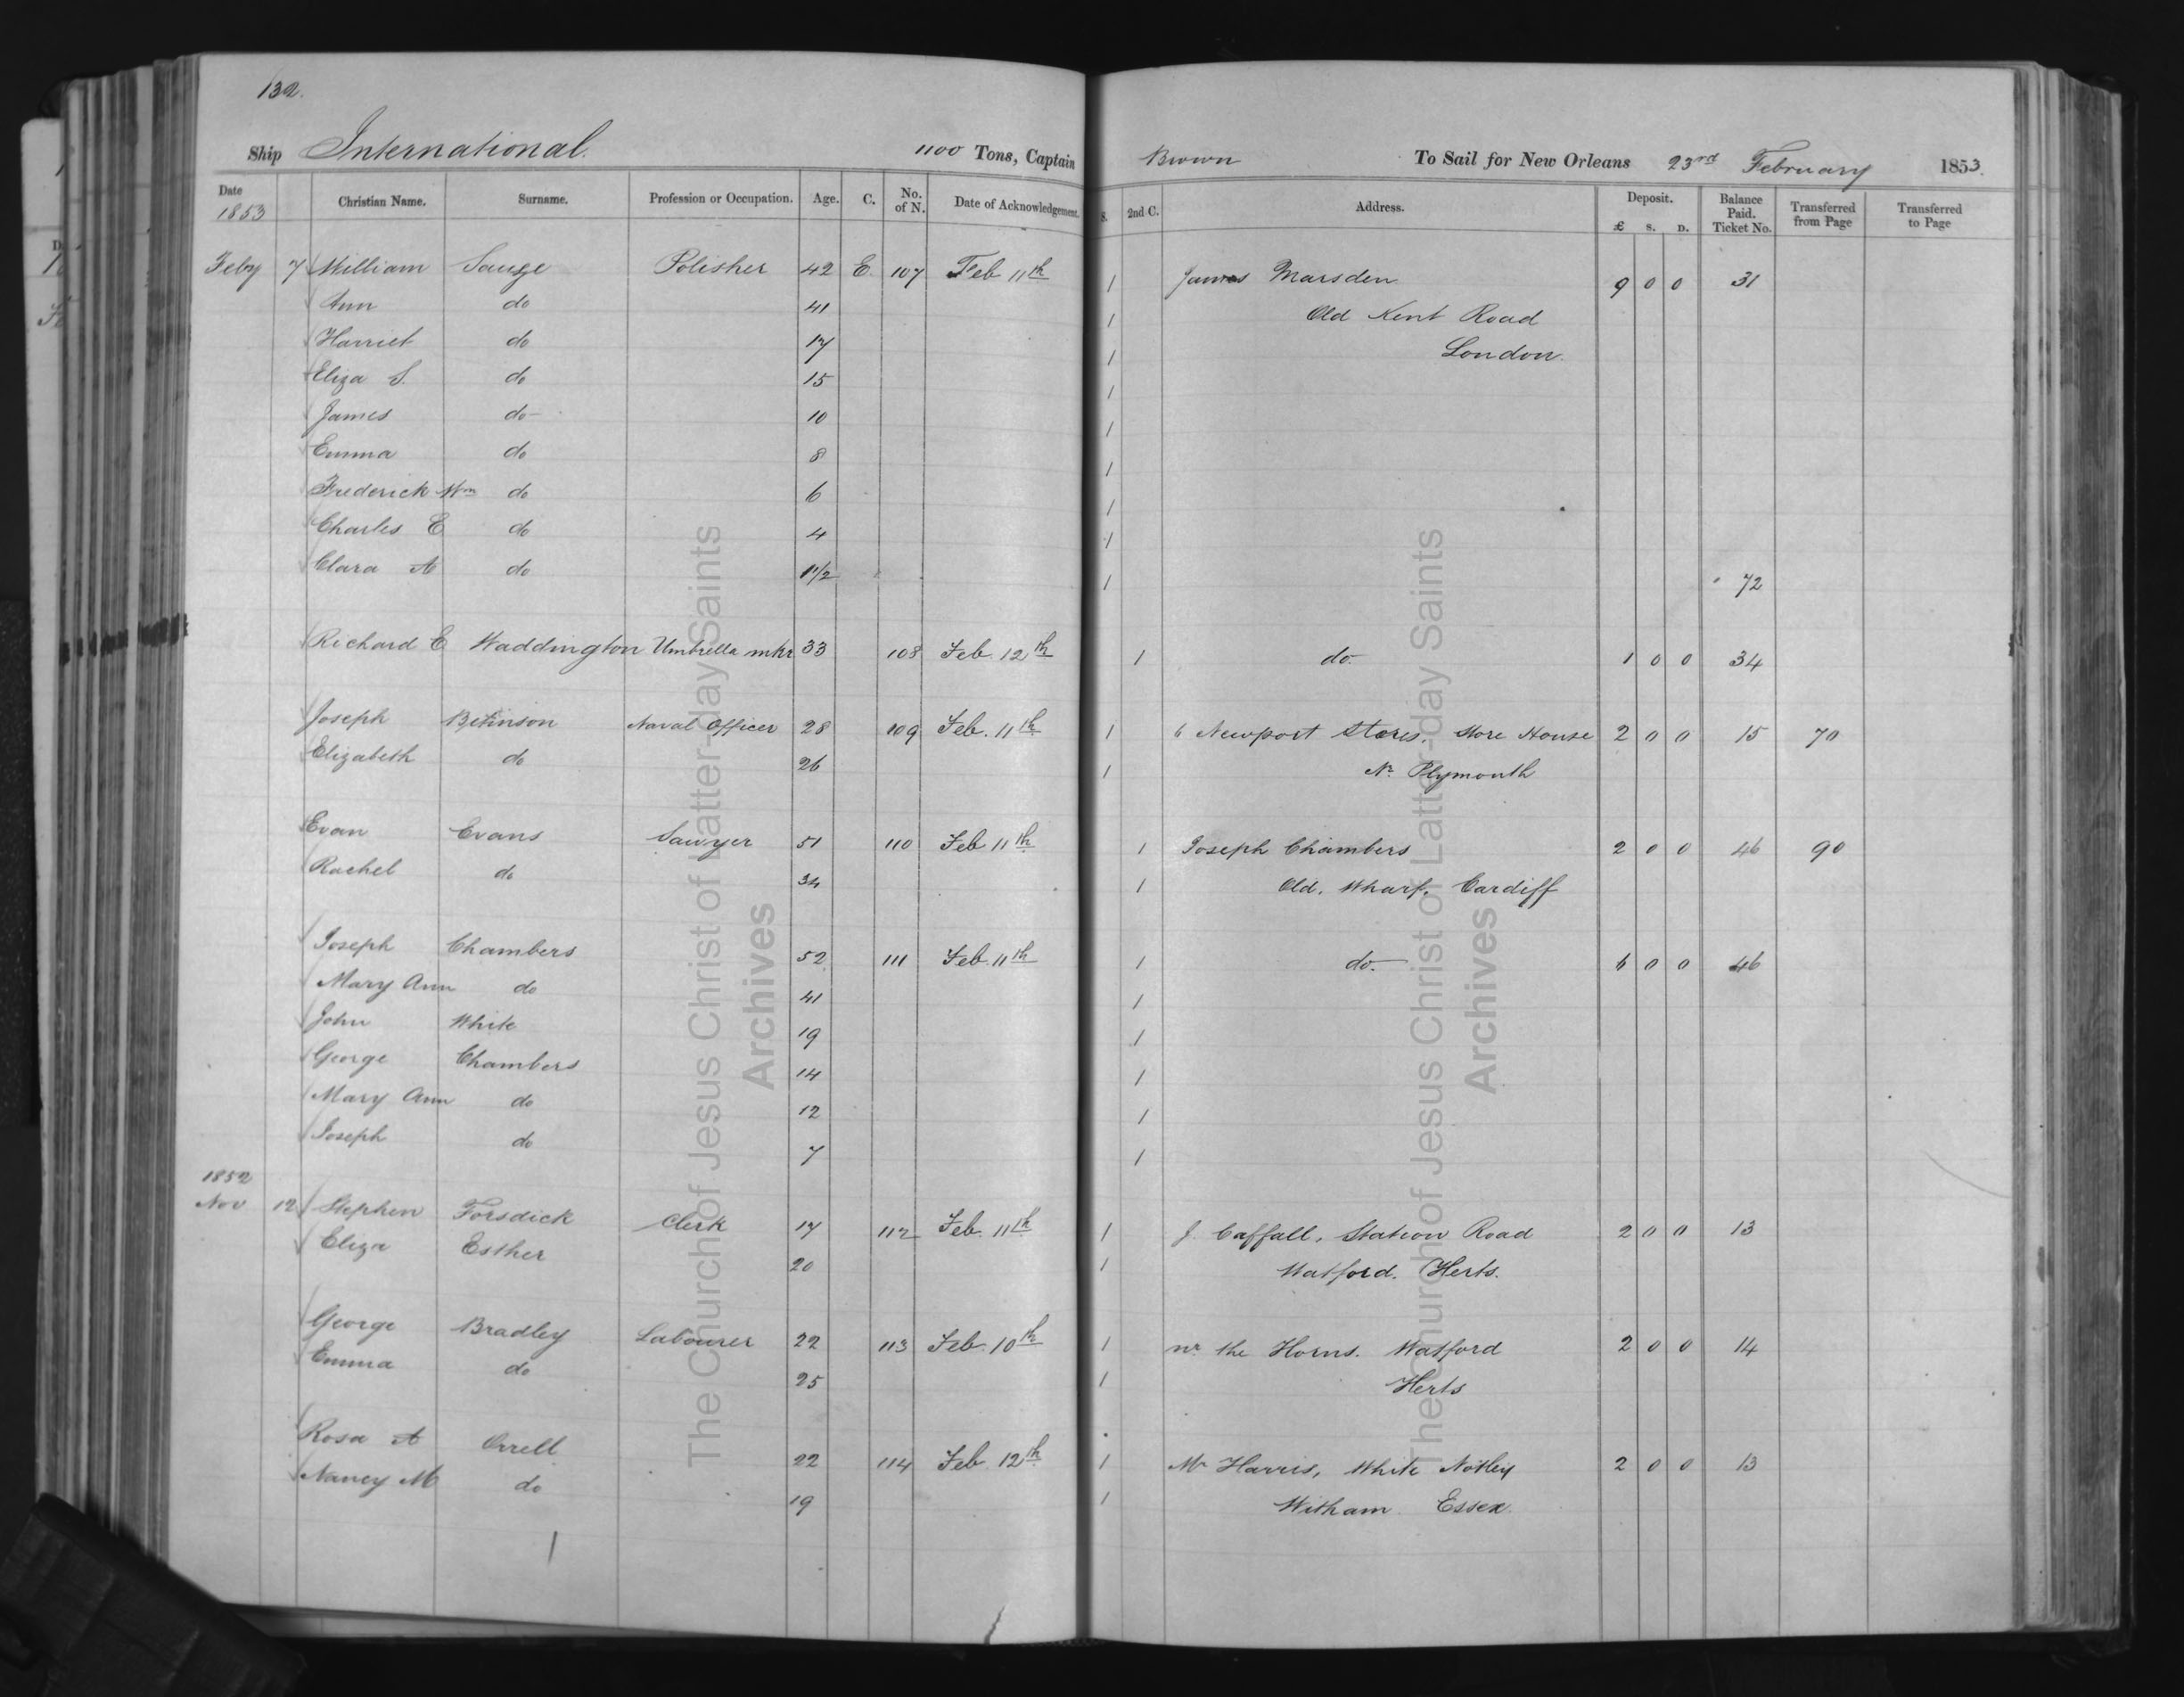 132.
Ship International. 1100 Tons, Captain Brown To Sail for New Orleans 23rd February 1853.
Date 1853 Christian Name. Surname. Profession or Occupation. Age. C. No. of N. Date of Acknowledgement. S. 2nd C. Address. Deposit. £ s. D. Balance Paid. Ticket No. Transferred from Page Transferred to Page
Feby 7 William Sauze Polisher 42 E. 107 Feb 11th 1 James Marsden 9 0 0 31
Ann do 41 1 Old Kent Road
Harriet do 17 1 London.
Eliza S. do 15 1
James do 10 1
Emma do 8 1
Frederick Wm do 6 1
Charles E do 4 1
Clara A do 1 1/2 1 72
Richard E Waddington Umbrella mkr 33 108 Feb. 12th 1 do. 1 0 0 34
Joseph Bitinson Naval Officer 28 109 Feb. 11th 1 6 Newport Stores, Store House 2 0 0 15 70
Elizabeth do 26 1 Nr. Plymouth
Evan Evans Sawyer 51 110 Feb 11th 1 Joseph Chambers 2 0 0 46 90
Rachel do 34 1 Old. Wharf. Cardiff
Joseph Chambers 52 111 Feb. 11th 1 do. 6 0 0 46
Mary Ann do 41 1
John White 19 1
George Chambers 14 1
Mary Ann do 12 1
Joseph do 7 1
1852
Nov 12 Stephen Forsdick Clerk 17 112 Feb. 11th 1 J. Caffall, Station Road 2 0 0 13
Eliza Esther 20 1 Watford. Herts.
George Bradley Labourer 22 113 Feb. 10th 1 nr. the Horns. Watford 2 0 0 14
Emma do 25 1 Herts
Rosa A Orrell 22 114 Feb 12th 1 Mr Harris, White Notley 2 0 0 13
Nancy M do 19 1 Witham Essex.
The Church of Jesus Christ of Latter-day Saints
Archives
The Church of Jesus Christ of Latter-day Saints
Archives